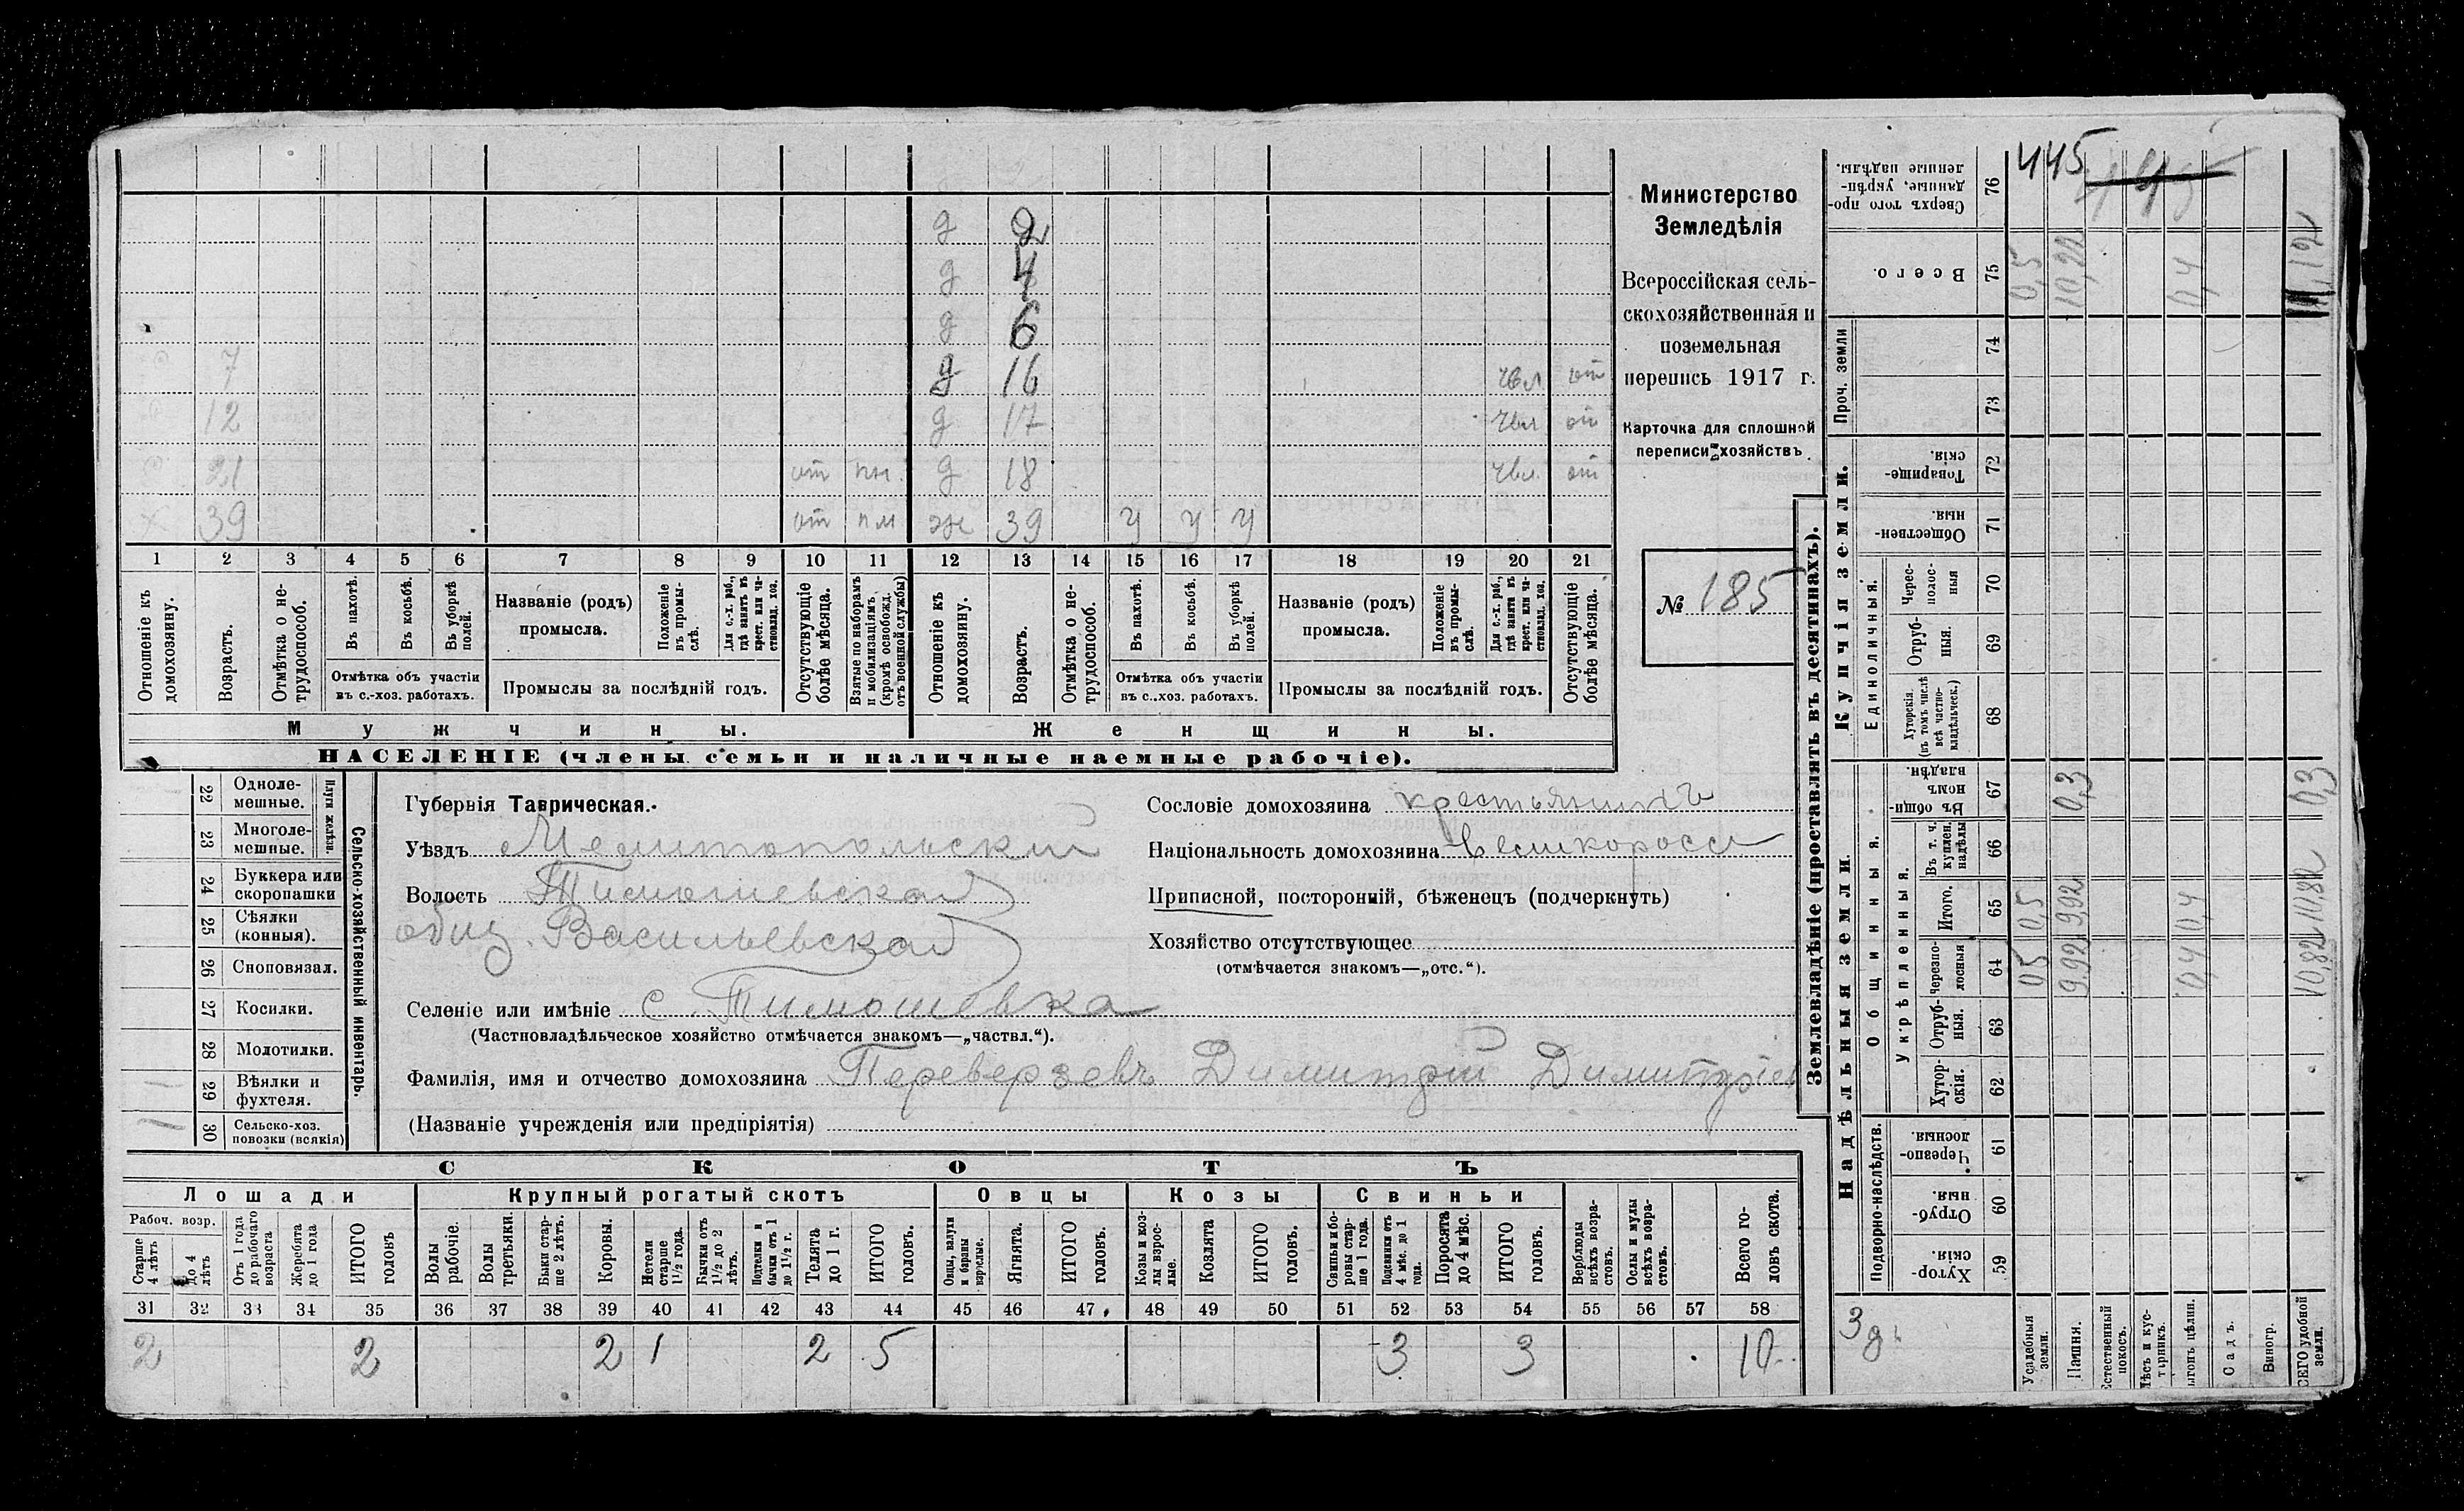 д 2
д 4
д 6
7 д 16 чвл от
12 д 17 чвл от
21 от пн. д 18 чвл. от
х 39 от пм ж 39 у у у
1 2 3 4 5 6 7 8 9 10 11 12 13 14 15 16 17 18 19 20 21
Отношеніе къ домохозяину.
Возрастъ.
Отмѣтка о нетрудоспособ.
Въ пахотѣ.
Въ косьбѣ.
Въ уборкѣ полей.
Отмѣтка объ участіи
въ с.-хоз. работахъ.
Названіе (родъ)
промысла.
Положеніе въ промыслѣ.
Для с.-х. раб., гдѣ занятъ въ крест. или частновлад. хоз.
Промыслы за послѣдній годъ.
Отсутствующіе болѣе мѣсяца.
Взятые по наборамъ и мобилизаціямъ. (кромѣ освобожд. отъ военной службы)
Отношеніе къ домохозяину.
Возрастъ.
Отмѣтка о нетрудоспособ.
Въ пахотѣ.
Въ косьбѣ.
Въ уборкѣ полей.
Отмѣтка объ участіи
въ с..хоз. работахъ.
Названіе (родъ)
промысла.
Положеніе въ промыслѣ.
Для с.-х. раб., гдѣ занята въ крест. или частновлад. хоз.
Промыслы за послѣдній годъ.
Отсутствующіе болѣе мѣсяца.
Мужчины. Женщины.
НАСЕЛЕНІЕ (члены семьи и наличные наемные рабочіе).
Министерство
Земледѣлія
Всероссійская сель-
скохозяйственная и
поземельная
перепись 1917 г.
Карточка для сплошной
переписи хозяйствъ
№ 185
22 Однолемешные.
23 Многолемешные.
Плуги желѣзн.
24 Буккера или скоропашки
25 Сѣялки (конныя).
26 Сноповязал.
27 Косилки.
28 Молотилки.
29 Вѣялки и фухтеля.
1
30 Сельско-хоз. повозки (всякія)
1
Сельско-хозяйственный инвентарь.
Губернія Таврическая.
Уѣздъ Мелитопольский
Волость Тимошевская
общ. Васильевская
Селеніе или имѣніе с. Тимошевка
(Частновладѣльческое хозяйство отмѣчается знакомъ—„частвл.“).
Фамилія, имя и отчество домохозяина Переверзевъ Димитрій Димитріев
(Названіе учрежденія или предпріятія)
Сословіе домохозяина крестьянинъ
Національность домохозяина великоросс
Приписной, посторонній, бѣженецъ (подчеркнуть)
Хозяйство отсутствующее
(отмѣчается знакомъ—„отс.“).
СКОТЪ
Лошади Крупный рогатый скотъ Овцы Козы Свиньи
Рабоч. возр.
Старше 4 лѣтъ
до 4 лѣтъ
Отъ 1 года до рабочаго возраста
Жеребята до 1 года
ИТОГО головъ
Волы рабочіе.
Волы третьяки.
Быки старше 2 лѣтъ.
Коровы.
Нетели старше 1½ года.
Бычки отъ 1½ до 2 лѣтъ.
Подтелки и бычки отъ 1 до 1½ г.
Телята до 1 г.
ИТОГО головъ.
Овцы, валухи и бараны взрослые.
Ягнята.
ИТОГО головъ.
Козы и козлы взрослые.
Козлята
ИТОГО головъ.
Свиньи и боровы старше 1 года.
Подсвинки отъ 4 мѣс. до 1 года.
Поросята до 4 мѣс.
ИТОГО головъ.
Верблюды всѣхъ возрастовъ.
Ослы и мулы всѣхъ возрастовъ.
Всего головъ скота.
31 32 33 34 35 36 37 38 39 40 41 42 43 44 45 46 47 48 49 50 51 52 53 54 55 56 57 58
2 2 2 1 2 5 3 3 10
Землевладѣніе (проставлять въ десятинахъ).
Купчія земли.
Надѣльныя земли.
Сверхъ того проданные, укрѣпленные надѣлы. 76 445
Всего. 75 0,5 10,22 0,4 11,12
Проч. земли
74
73
Товарищескія. 72
Общественныя. 71
Единоличныя.
Черес-полосныя 70
Отрубныя. 69
Хуторскія. (въ томъ числѣ всѣ частновладѣльческ.) 68
Общинныя.
Въ общинномъ владѣн. 67 0,3 0,3
Укрѣпленныя.
Въ т. ч. куплен. надѣлы 66
Итого. 65 0,5 9,92 0,4 10,82
Черезполосныя 64 0,5 9,92 0,4 10,82
Отрубныя. 63
Хуторскія. 62
Подворно-наслѣдств.
Черезполосныя. 61
Отрубныя. 60
Хуторскія. 59
3 д.
Усадебныя земли.
Пашня.
Естественный покосъ.
Лѣсъ и кустарникъ.
Выгонъ цѣлин.
Садъ.
Виногр.
ВСЕГО удобной земли.